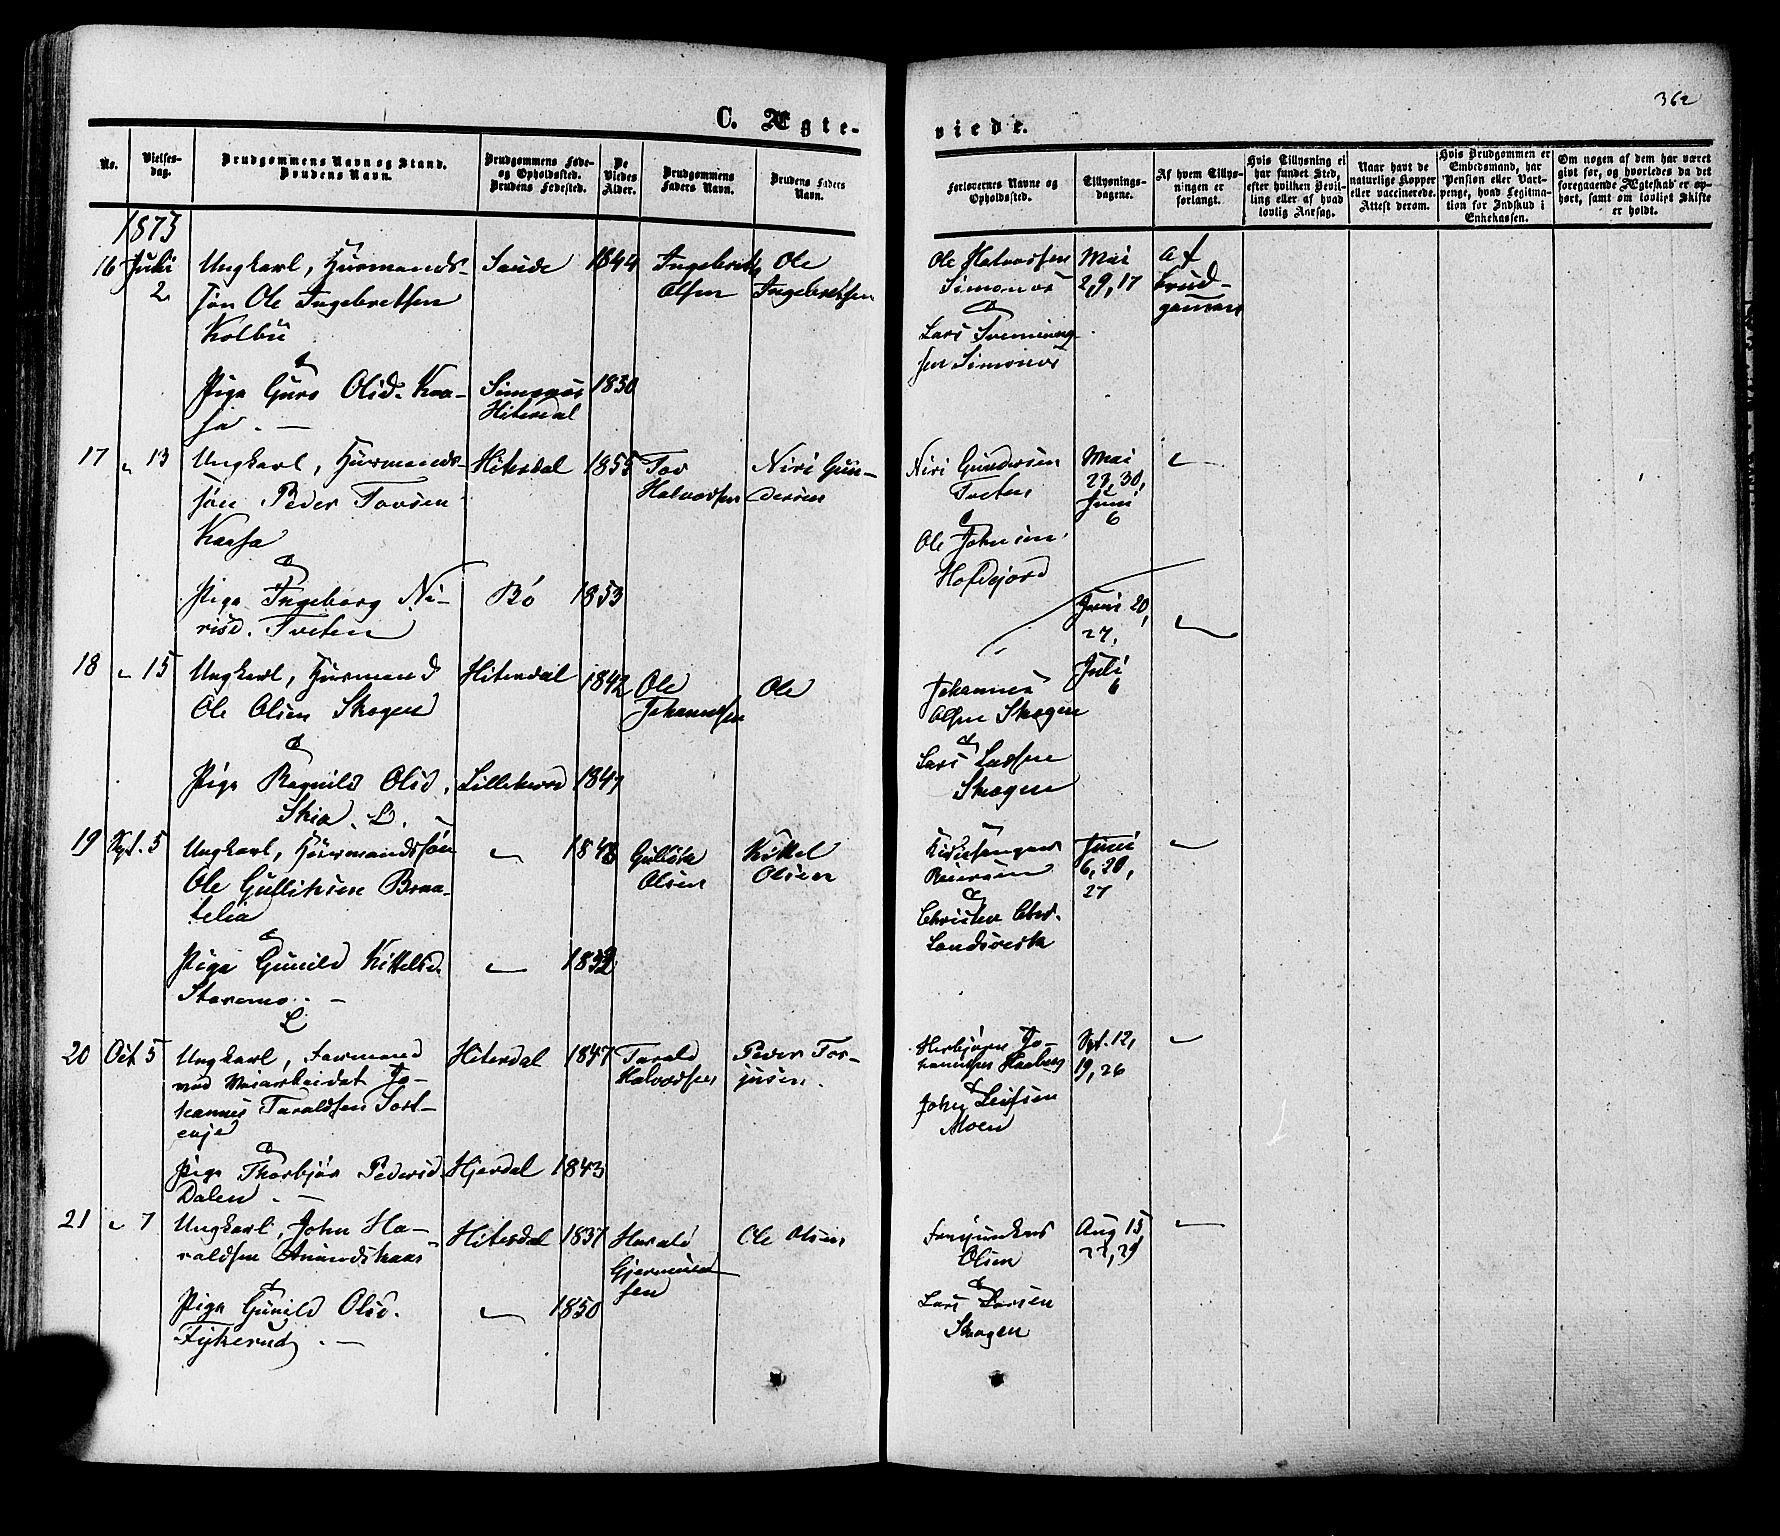 362
C. Ægte-
viede.
No.
Vielses-
dag.
Brudgommens Navn og Stand.
Brudens Navn.
Brudgommens Føde-
og Opholdssted.
Brudens Fødested.
De
Viedes
Alder.
Brudgommens
Faders Navn.
Brudens Faders
Navn.
Forlovernes Navne og
Opholdssted.
Tillysnings-
dagene.
Af hvem Tillys-
ningen er
forlangt.
Hvis Tillysning ei
har fundet Sted,
efter hvilken Bevil-
ling eller af hvad
lovlig Aarsag.
Naar havt de
naturlige Kopper
eller vaccinerede.
Attest derom.
Hvis Brudgommen er
Embedsmand, har
Pension eller Vart-
penge, hvad Legitima-
tion for Indskud i
Enkekassen.
Om nogen af dem har været
gift før, og hvorledes da det
foregaaende Ægteskab er op-
hørt, samt om lovligt Skifte
er holdt.
1873
16 Juli 2
Ungkarl, Husmands-
søn Ole Ingebretsen
Kolbu
&
Pige Guro Olsd. Kaa-
sa. —
Saude 1844
Simonæs
Hiterdal 1830
Ingebreth
Olsen
Ole
Ingebretsen
Ole Halvorsen
Simonæs
&
Lars Svenning-
sen Simonæs
Mai
2, 9, 17
Af
Brud-
gommen
17 " 13
Ungkarl, Husmands-
søn Peder Tovsen
Kaasa
&
Pige Ingeborg Ni-
risd. Tveten
Hiterdal 1855
Bö 1853
Tov
Halvorsen
Niri Gun-
dersen
Niri Gundersen
Tveten
&
Ole Johnsen
Hofdejord
Mai
23, 30,
Juni
6
"
18 " 15
Ungkarl, Husmand
Ole Olsen Skogen
&
Pige Ragnild Olsd.
Skia. L.
Hiterdal 1842
Lilleherred 1847
Ole
Johannesen
Ole
Johannes
Olsen Skogen
&
Lars Larsen
Skogen
Juni 20,
27,
Juli
6
"
19 Sept. 5
Ungkarl, Husmandssøn
Ole Gulliksen Braa-
telia
&
Pige Gunild Kittelsd.
Staremo. —
L
" 1848
" 1832
Gullik
Olsen
Kittel
Olsen
Kirkesanger
&
Christen Chr.
Landsverk
Juni
6, 20,
27
"
20 Oct. 5
Ungkarl,
Jo-
hannes Taraldsen
&
Pige Thorbjør Pedersd.
Dalen. —
Hiterdal 1847
Hjerdal 1843
Tarald
Halvorsen
Peder Tor-
jusen.
Herbjørn Jo-
hannesen Haaberg
&
John Leifsen
Moen
Spt. 12,
19, 26
"
21 " 7
Ungkarl, John Ha-
raldsen Amundskaas
&
Pige Gunild Olsd.
Fykerud. —
Hiterdal 1837
" 1850
Harald
Gjermund-
sen
Ole Olsen
Olsen
&
Lars Larsen
Skogen
Aug 15,
22, 29
"